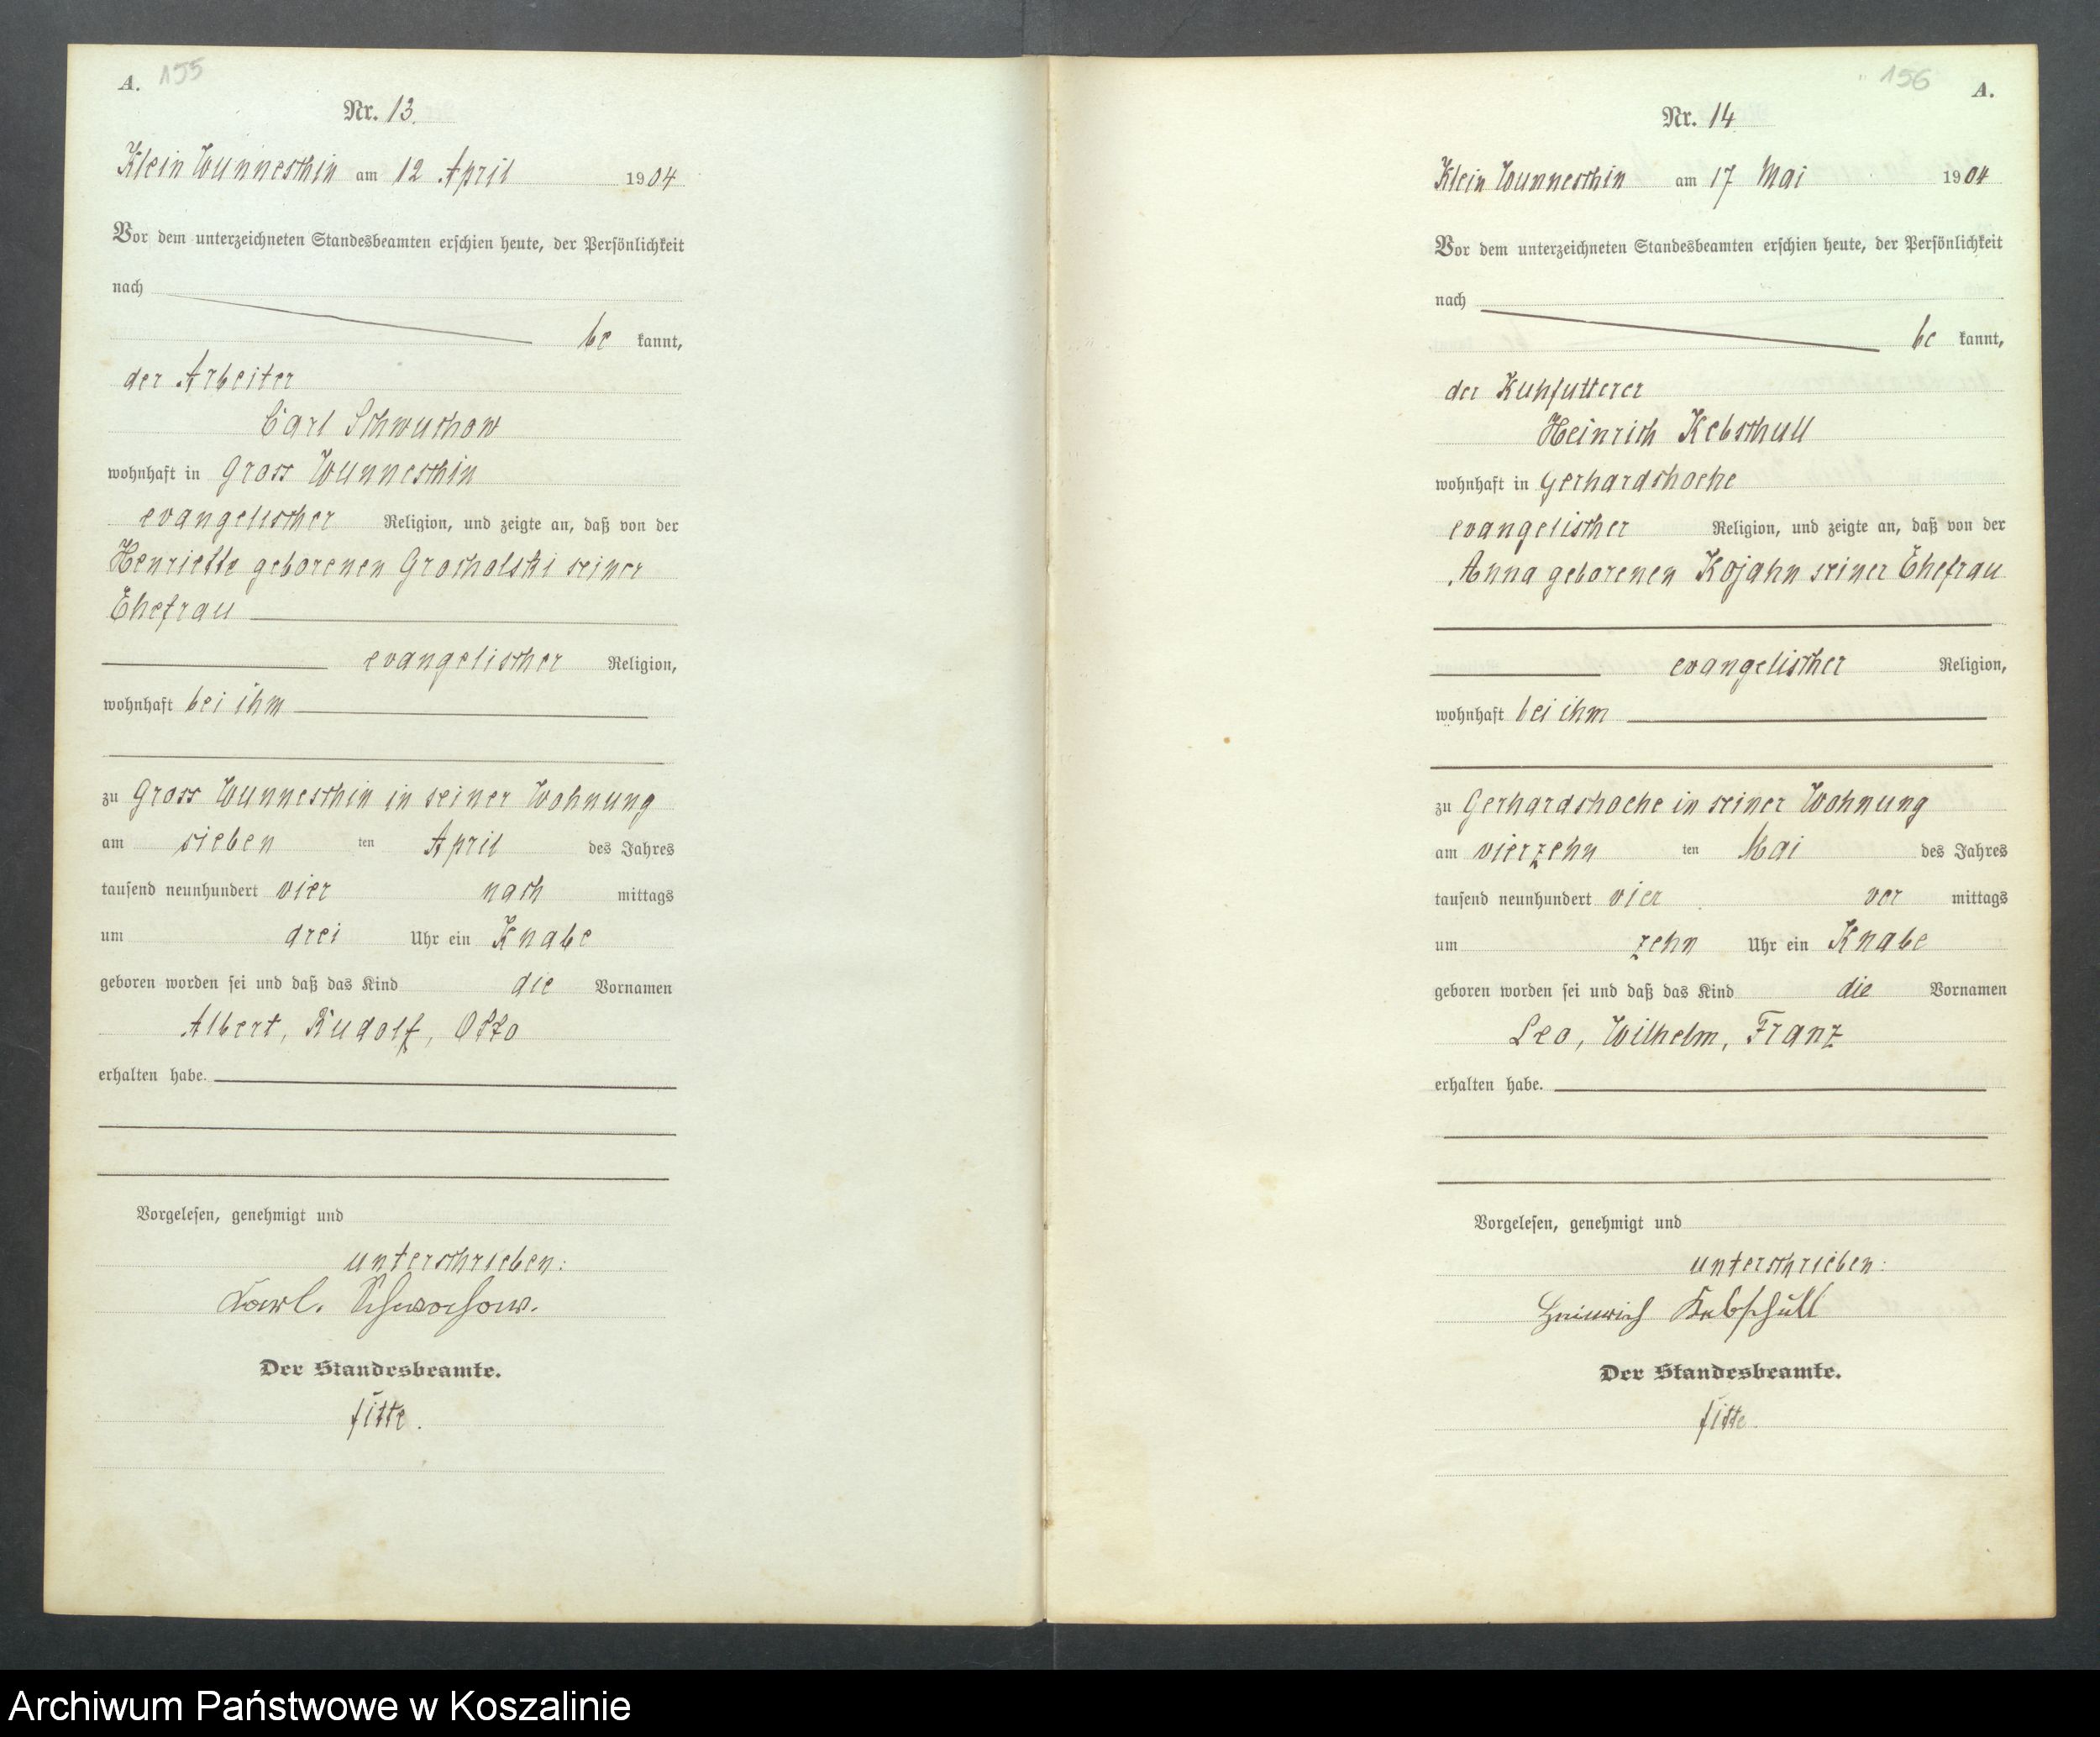 A. 155
Nr. 13.
Klein Wunneschin am 12 April 1904
Vor dem unterzeichneten Standesbeamten erschien heute, der Persönlichkeit
nach
be kannt,
der Arbeiter
Carl Schwuchow
wohnhaft in Gross Wunneschin
evangelischer Religion, und zeigte an, daß von der
Henriette geborenen Grocholski seiner
Ehefrau
evangelischer Religion,
wohnhaft bei ihm
zu Gross Wunneschin in seiner Wohnung
am sieben ten April des Jahres
tausend neunhundert vier nach mittags
um drei Uhr ein Knabe
geboren worden sei und daß das Kind die Vornamen
Albert, Rudolf, Otto
erhalten habe.
Vorgelesen, genehmigt und
unterschrieben:
Karl.
Der Standesbeamte.
fitte.
156 A.
Nr. 14
Klein Wunneschin am 17 Mai 1904
Vor dem unterzeichneten Standesbeamten erschien heute, der Persönlichkeit
nach
be kannt,
der Kuhfutterer
Heinrich Kebschull
wohnhaft in Gerhardshoehe
evangelischer Religion, und zeigte an, daß von der
Anna geborenen Kojahn seiner Ehefrau
evangelischer Religion,
wohnhaft bei ihm
zu Gerhardshoehe in seiner Wohnung
am vierzehn ten Mai des Jahres
tausend neunhundert vier vor mittags
um zehn Uhr ein Knabe
geboren worden sei und daß das Kind die Vornamen
Leo, Wilhelm, Franz
erhalten habe.
Vorgelesen, genehmigt und
unterschrieben:
Heinrich Kebschull
Der Standesbeamte.
fitte.
Archiwum Państwowe w Koszalinie